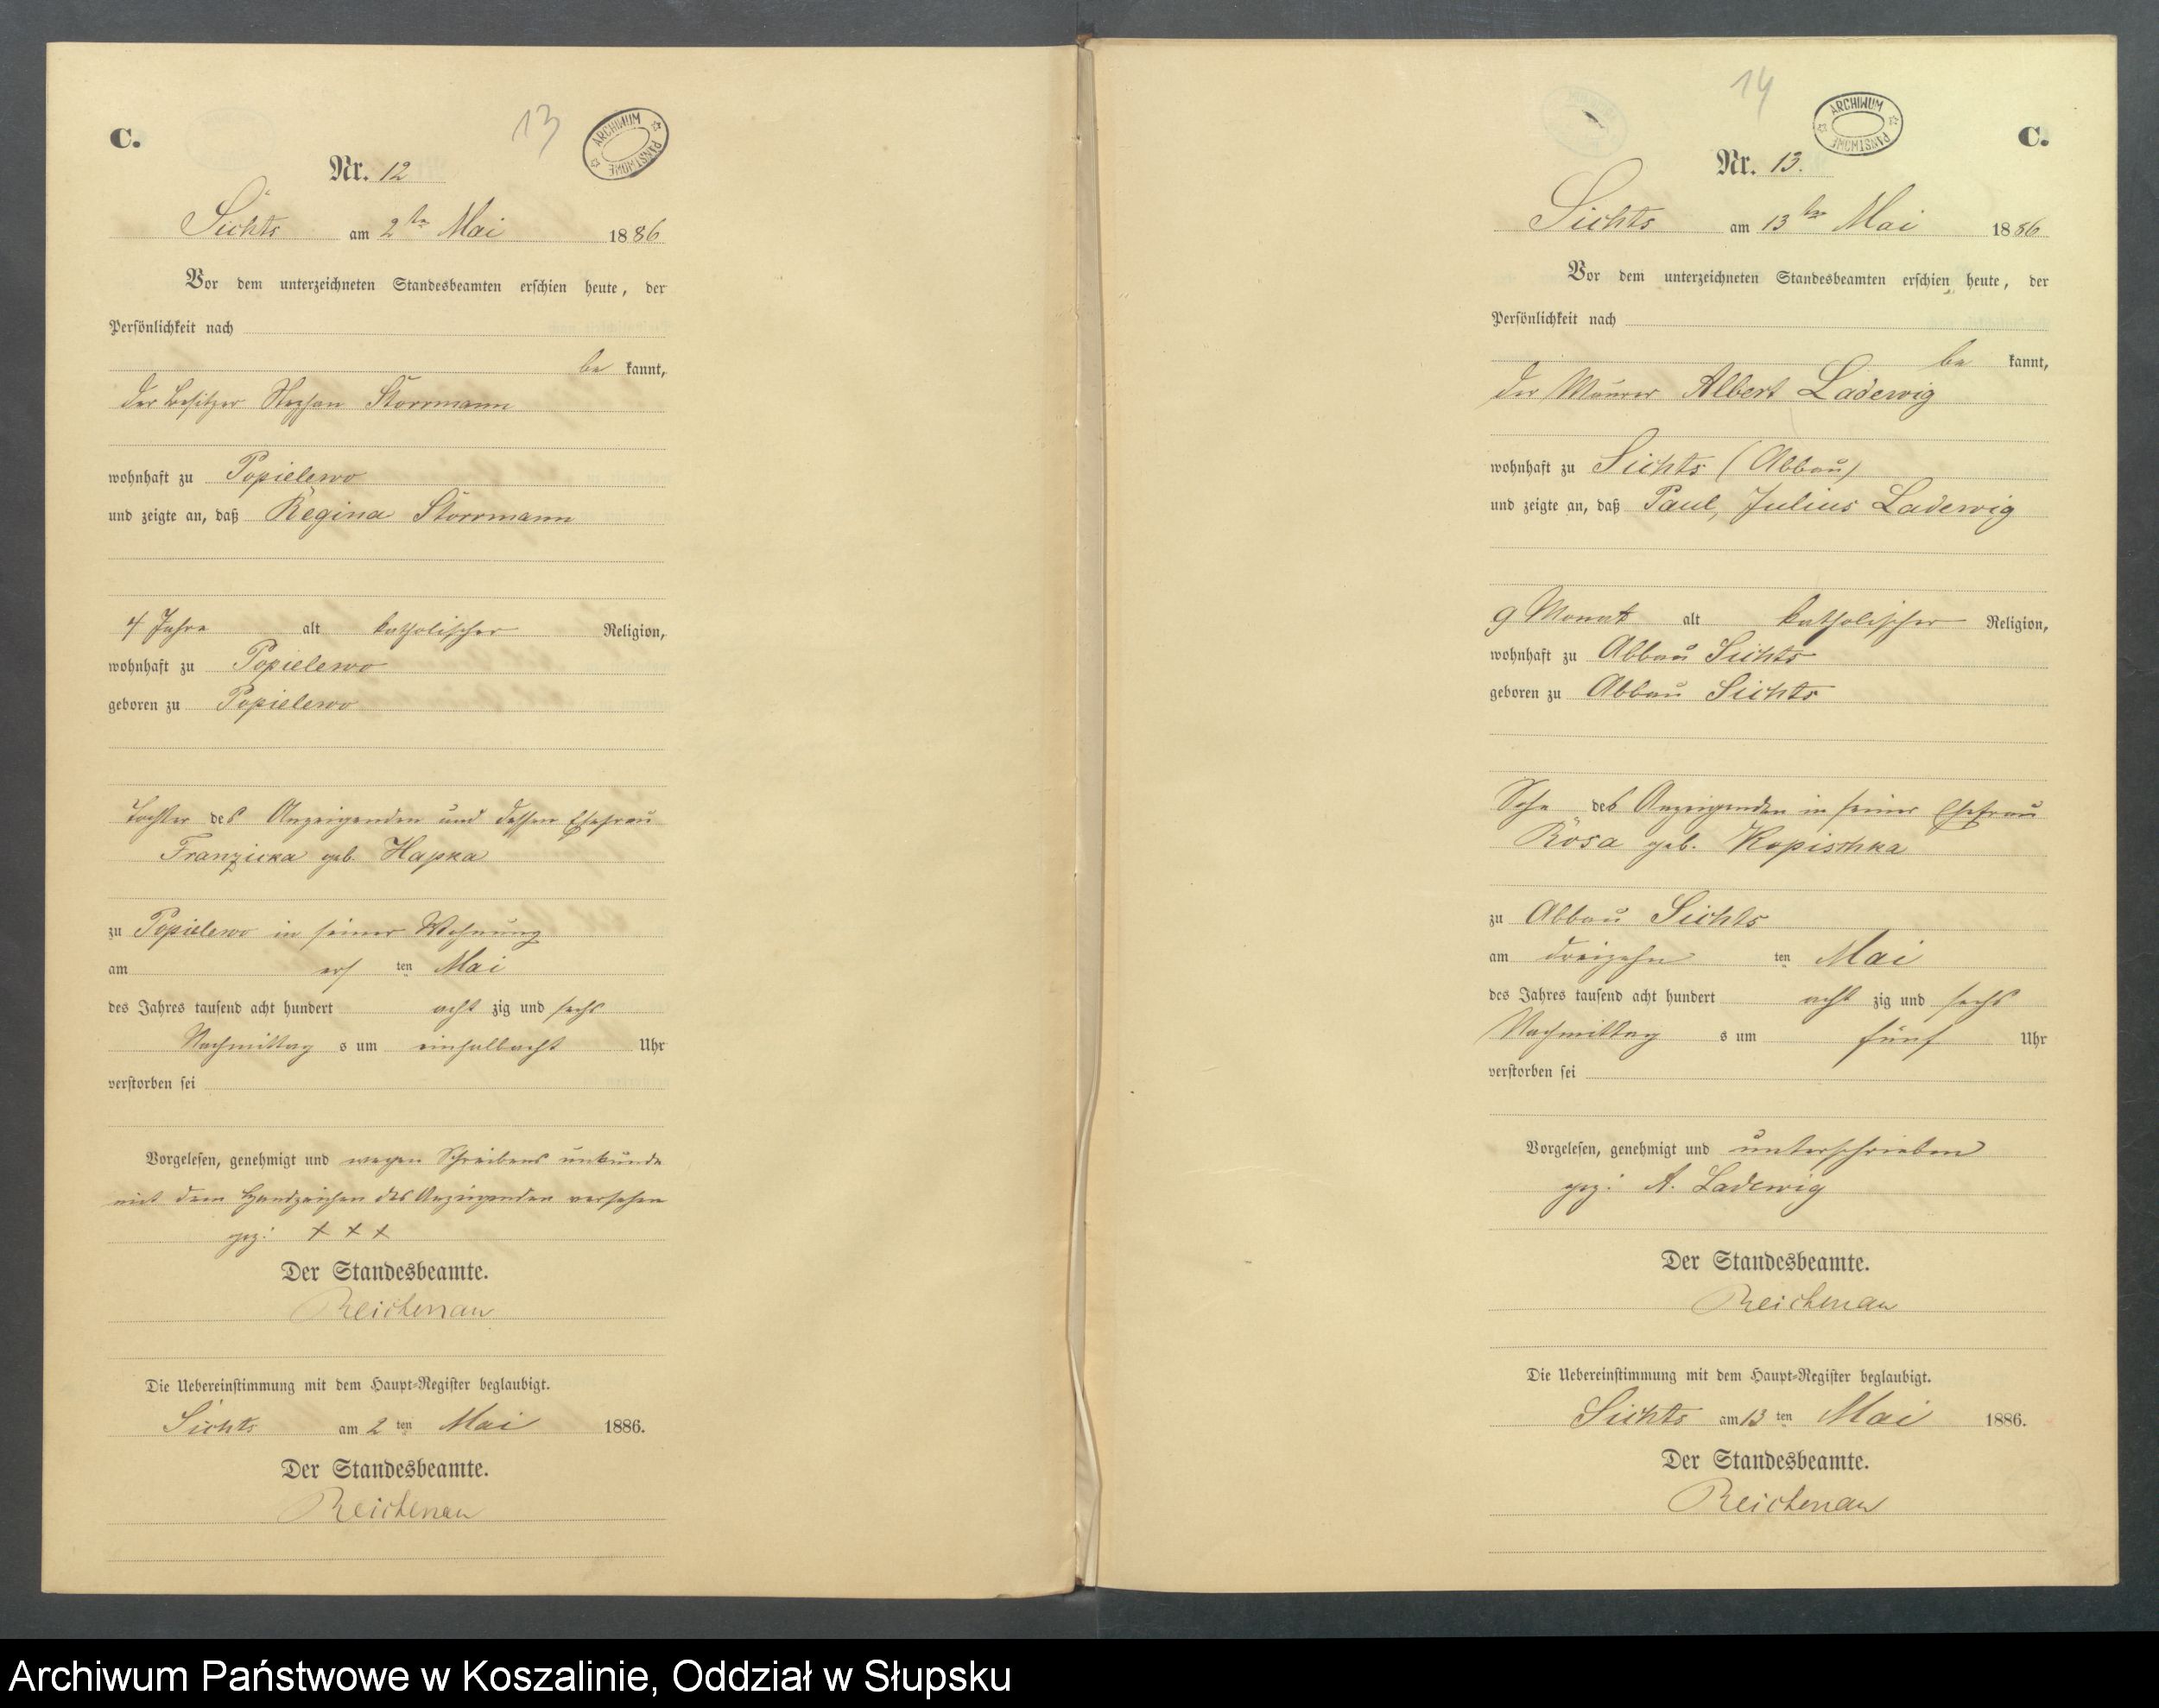 13
ARCHIWUM PAŃSTWOWE
C.
Nr. 12
Sichts am 2ten Mai 1886
Vor dem unterzeichneten Standesbeamten erschien heute, der
Persönlichkeit nach
be kannt,
der Besitzer Stephan Storrmann
wohnhaft zu Popielewo
und zeigte an, daß Regina Storrmann
4 Jahre alt katholischer Religion,
wohnhaft zu Popielewo
geboren zu Popielewo
Tochter des Anzeigenden und dessen Ehefrau
Franzicka geb. Hapka
zu Popielewo in seiner Wohnung
am ers ten Mai
des Jahres tausend acht hundert acht zig und sechs
Nachmittag s um einhalbacht Uhr
verstorben sei
Vorgelesen, genehmigt und wegen Schreibens unkunde
mit dem Handzeichen des Anzeigenden versehen
gez: + + +
Der Standesbeamte.
Reichenau
Die Uebereinstimmung mit dem Haupt-Register beglaubigt.
Sichts am 2 ten Mai 1886.
Der Standesbeamte.
Reichenau
14
ARCHIWUM PAŃSTWOWE
C.
Nr. 13.
Sichts am 13ten Mai 1886
Vor dem unterzeichneten Standesbeamten erschien heute, der
Persönlichkeit nach
be kannt,
der Maurer Albert Ladewig
wohnhaft zu Sichts (Abbau)
und zeigte an, daß Paul, Julius Ladewig
9 Monat alt katholischer Religion,
wohnhaft zu Abbau Sichts
geboren zu Abbau Sichts
Sohn des Anzeigenden in seiner Ehefrau
Rosa geb. Kopischka
zu Abbau Sichts
am dreizehn ten Mai
des Jahres tausend acht hundert acht zig und sechs
Nachmittag s um fünf Uhr
verstorben sei
Vorgelesen, genehmigt und unterschrieben
gez: A. Ladewig
Der Standesbeamte.
Reichenau
Die Uebereinstimmung mit dem Haupt-Register beglaubigt.
Sichts am 13 ten Mai 1886.
Der Standesbeamte.
Reichenau
Archiwum Państwowe w Koszalinie, Oddział w Słupsku